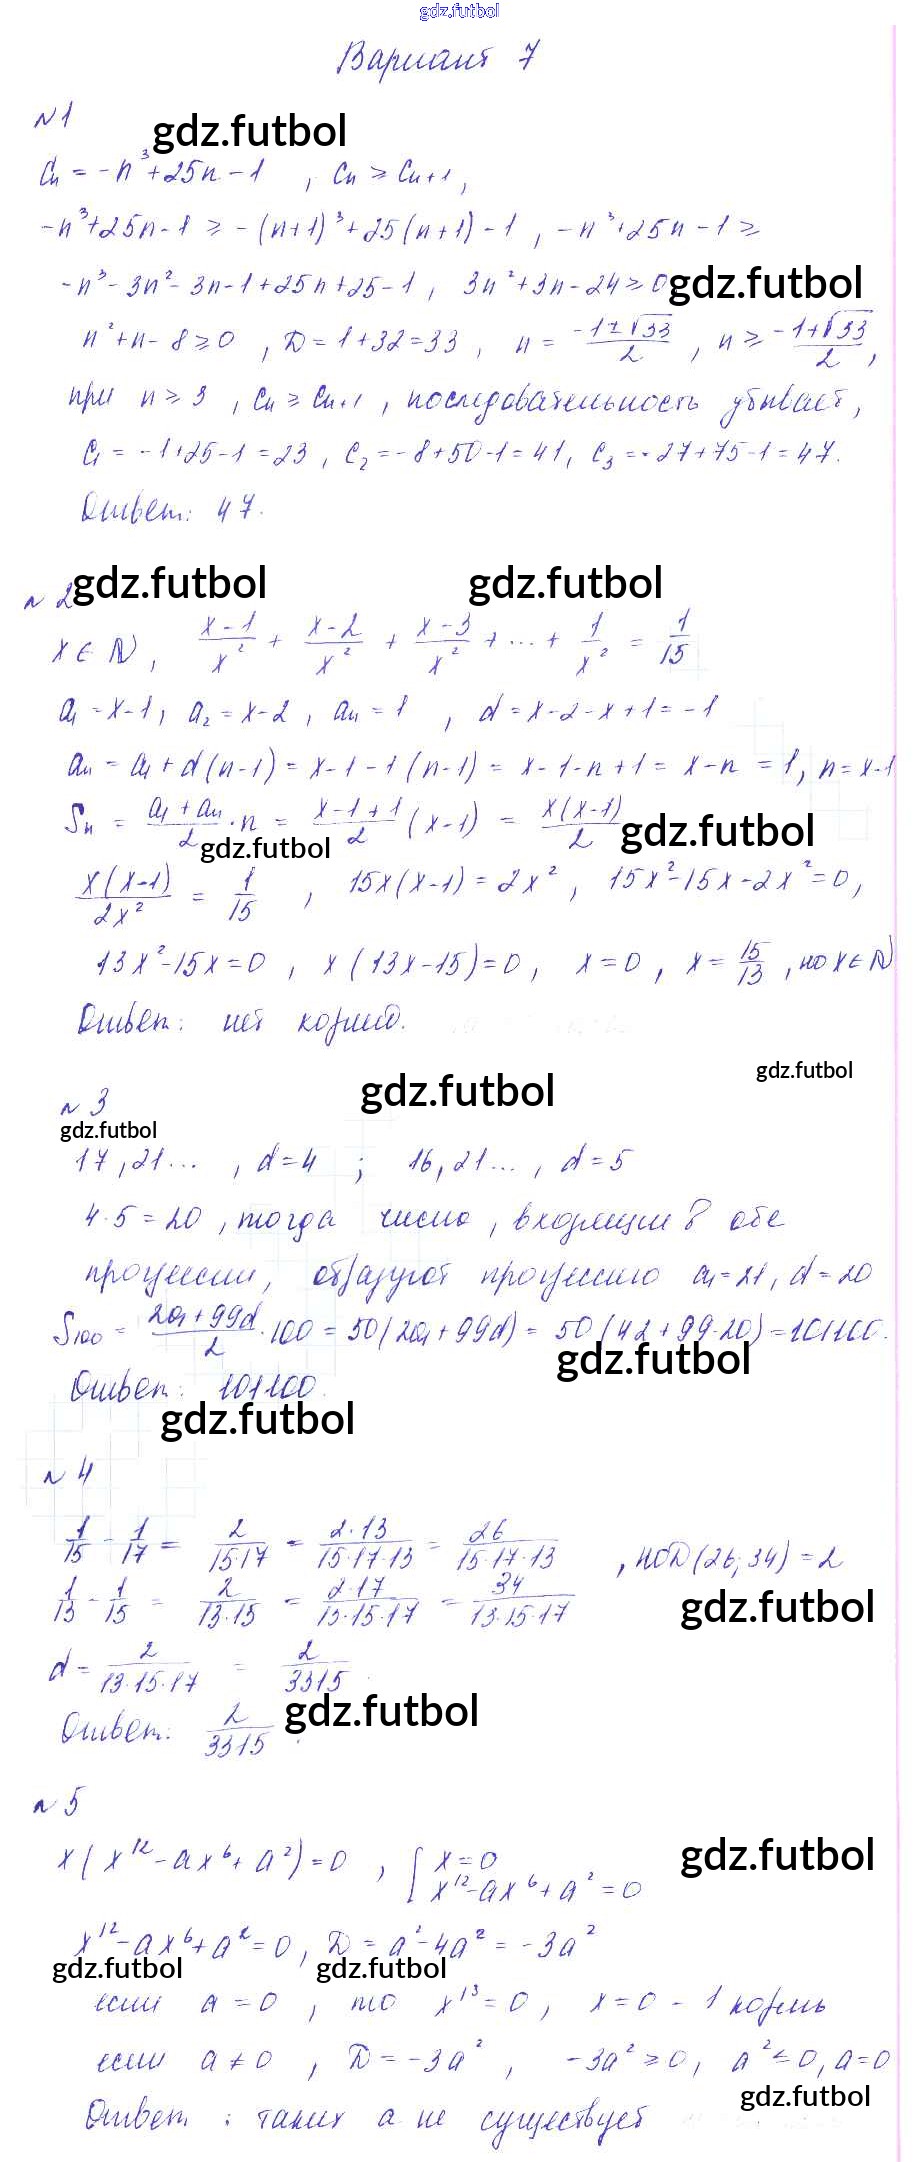 gdz.futbol
Вариант 7
№1
gdz.futbol
Cn = -n³+25n-1 , Cn ≥ Cn+1,
-n³+25n-1 ≥ -(n+1)³+25(n+1)-1 , -n³+25n-1 ≥
-n³-3n²-3n-1+25n+25-1, 3n²+3n-24≥0 gdz.futbol
n²+n-8≥0 , D=1+32=33 , n = (-1±√33)/2 , n ≥ (-1+√33)/2 ,
при n≥3 , Cn≥Cn+1 , последовательность убывает,
C1 = -1+25-1=23 , C2=-8+50-1=41, C3=-27+75-1=47.
Ответ: 47.
№2 gdz.futbol gdz.futbol
x∈N, (x-1)/x² + (x-2)/x² + (x-3)/x² + ... + 1/x² = 1/15
a1 = x-1, a2=x-2, an=1 , d=x-2-x+1=-1
an = a1+d(n-1)=x-1-1(n-1)=x-1-n+1=x-n=1, n=x-1
Sn = (a1+an)/2·n = (x-1+1)/2 (x-1) = x(x-1)/2 gdz.futbol
gdz.futbol
x(x-1)/2x² = 1/15 , 15x(x-1)=2x², 15x²-15x-2x²=0,
13x²-15x=0 , x(13x-15)=0, x=0 , x=15/13 , но x∈N
Ответ: нет корней.
gdz.futbol gdz.futbol
№3
gdz.futbol
17,21... , d=4 ; 16,21... , d=5
4·5=20 , тогда число, входящии в обе
прогрессии, образуют прогрессию a1=21, d=20
S100 = (2a1+99d)/2·100=50(2a1+99d)=50(42+99·20)=101100.
gdz.futbol
Ответ: 101100.
gdz.futbol
№4
1/15 - 1/17 = 2/(15·17) = (2·13)/(15·17·13) = 26/(15·17·13) , НОД(26;34)=2
1/13 - 1/15 = 2/(13·15) = (2·17)/(13·15·17) = 34/(13·15·17) gdz.futbol
d = 2/(13·15·17) = 2/3315.
Ответ: 2/3315. gdz.futbol
№5
x(x¹²-ax⁶+a²)=0 , [x=0 gdz.futbol
x¹²-ax⁶+a²=0
x¹²-ax⁶+a²=0, D=a²-4a²=-3a²
gdz.futbol gdz.futbol
если a=0 , то x¹³=0, x=0 - 1 корень
если a≠0 , D=-3a² , -3a²≥0, a²≤0, a=0
gdz.futbol
Ответ: таких a не существует